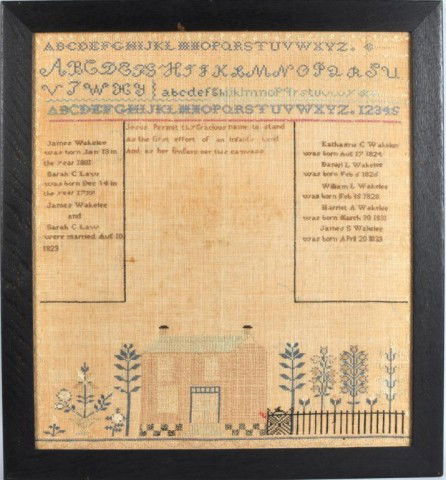 ABCDEFGHIJKLMNOPQRSTUVWXYZ.
ABCDEFGHIJKLMNOPQRSU
VTWXY abcdefghiklmnopqrstuvwx
ABCDEFGHIJKLMNOPQRSTUVWXYZ. 12345
Jesus Permit thy Gracious name to stand
As the first effort of an Infants hand
And as her fingers oer this canvass
James Wakelee
was born Jan 13 in
the year 1801
Sarah C Law
was born Dec 14 in
the year 1799
James Wakelee
and
Sarah C Law
were married Aug 10
1823
Katharine C Wakelee
was born Aug 17 1824
Daniel L Wakelee
was born Feb 6 1826
William L Wakelee
was born Feb 15 1828
Harriet A Wakelee
was born March 30 1831
James S Wakelee
was born April 20 1833